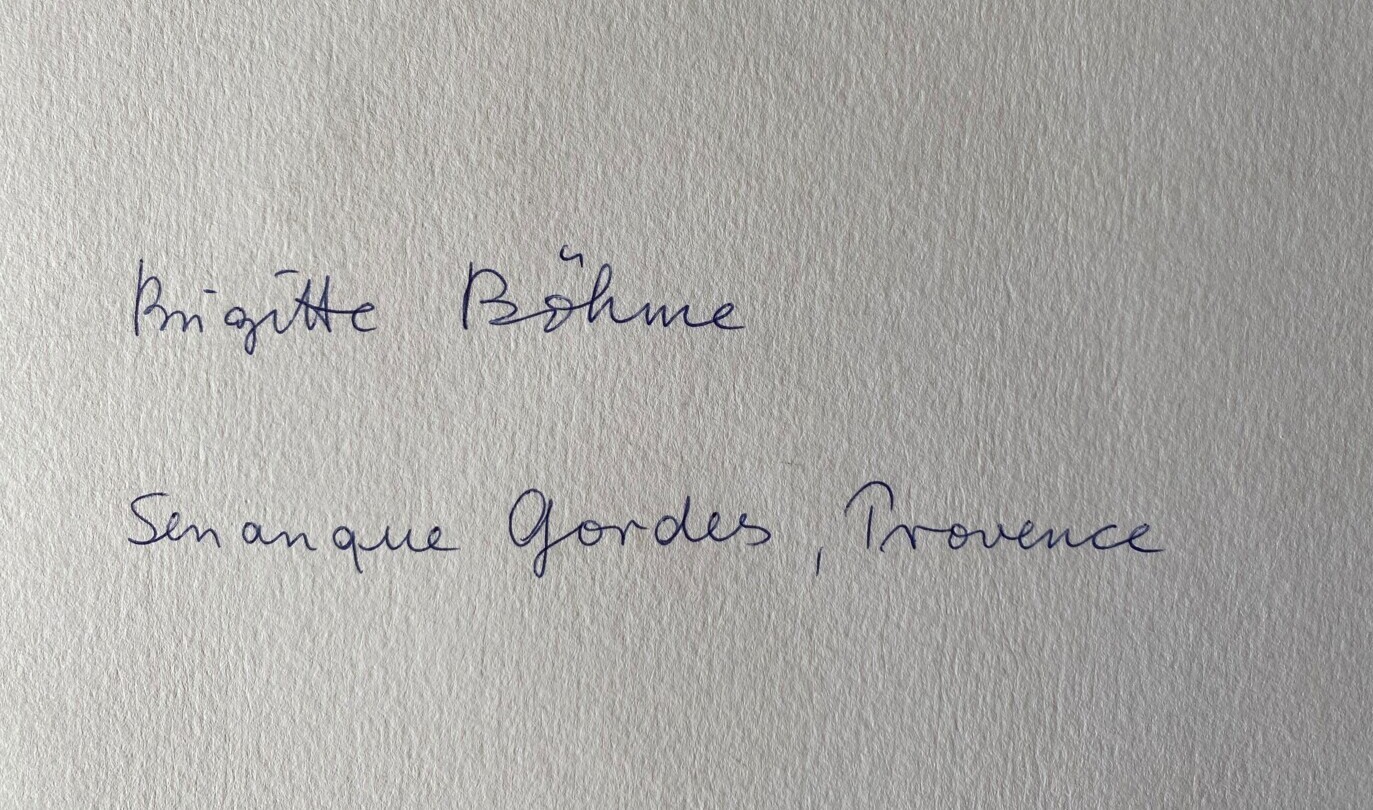 Brigitte Böhme
Senanque Gordes, Provence